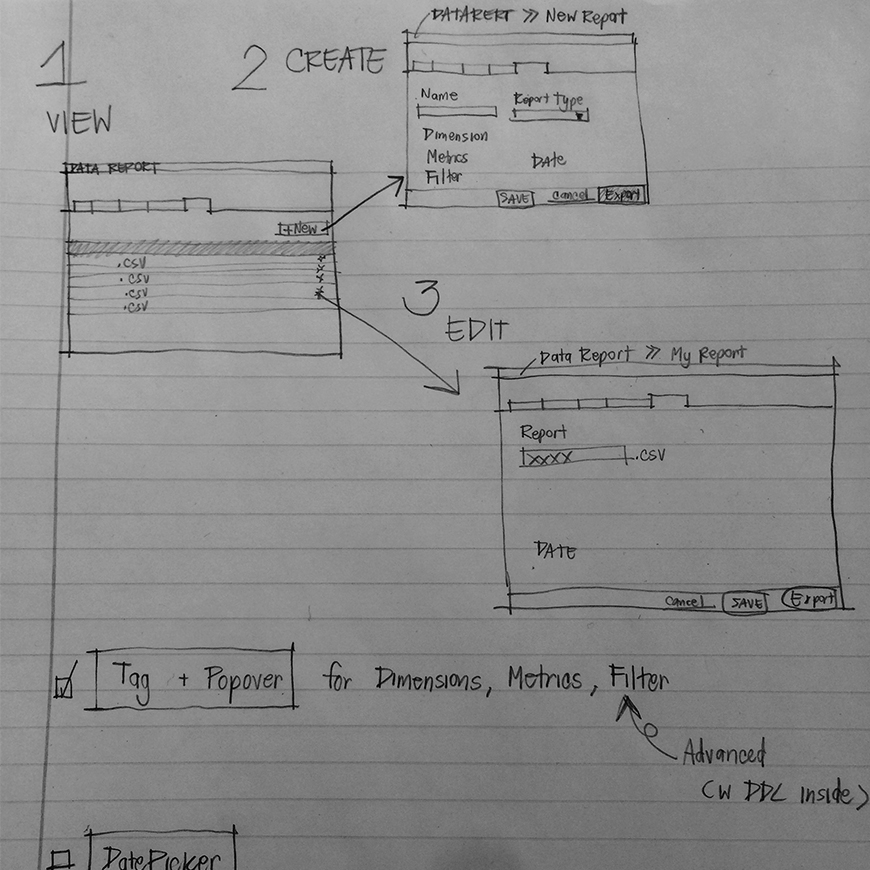 1
VIEW
DATA REPORT
+New
.csv
.csv
.csv
.csv
2 CREATE
DATARERT >> New Report
Name
Report Type
Dimension
Metrics
Filter
DATE
SAVE
Cancel
Export
3
EDIT
Data Report >> My Report
Report
xxxx .csv
DATE
Cancel
SAVE
Export
Tag + Popover for Dimensions, Metrics, Filter
Advanced
(W DDL inside)
DatePicker